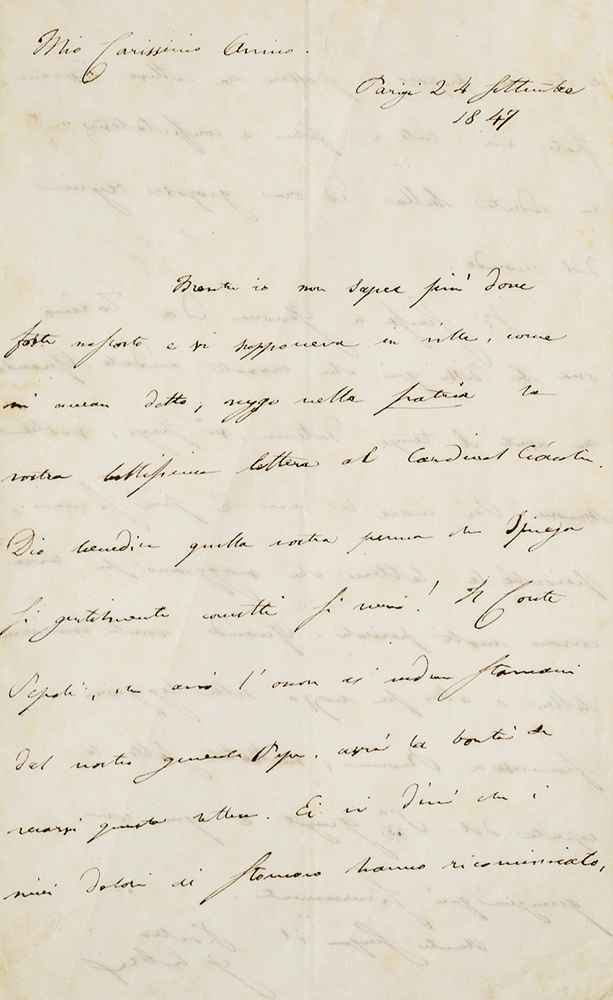 Mio Carissimo Amico.
Parigi 24 Settembre
1847
Mentre io non sapea più dove
foste nascosto e vi supponeva in villa, come
mi avean detto, veggo nella patria la
vostra bellissima lettera al Cardinal Ciacchi.
Dio benedica quella vostra penna che spiega
sì gentilmente concetti sì veri! Il Conte
Pepoli, che avrà l'onor di
del vostro Pepe, avrà la bontà di
recarvi questa lettera. Ei vi dirà che i
miei dolori di stomaco hanno ricominciato,